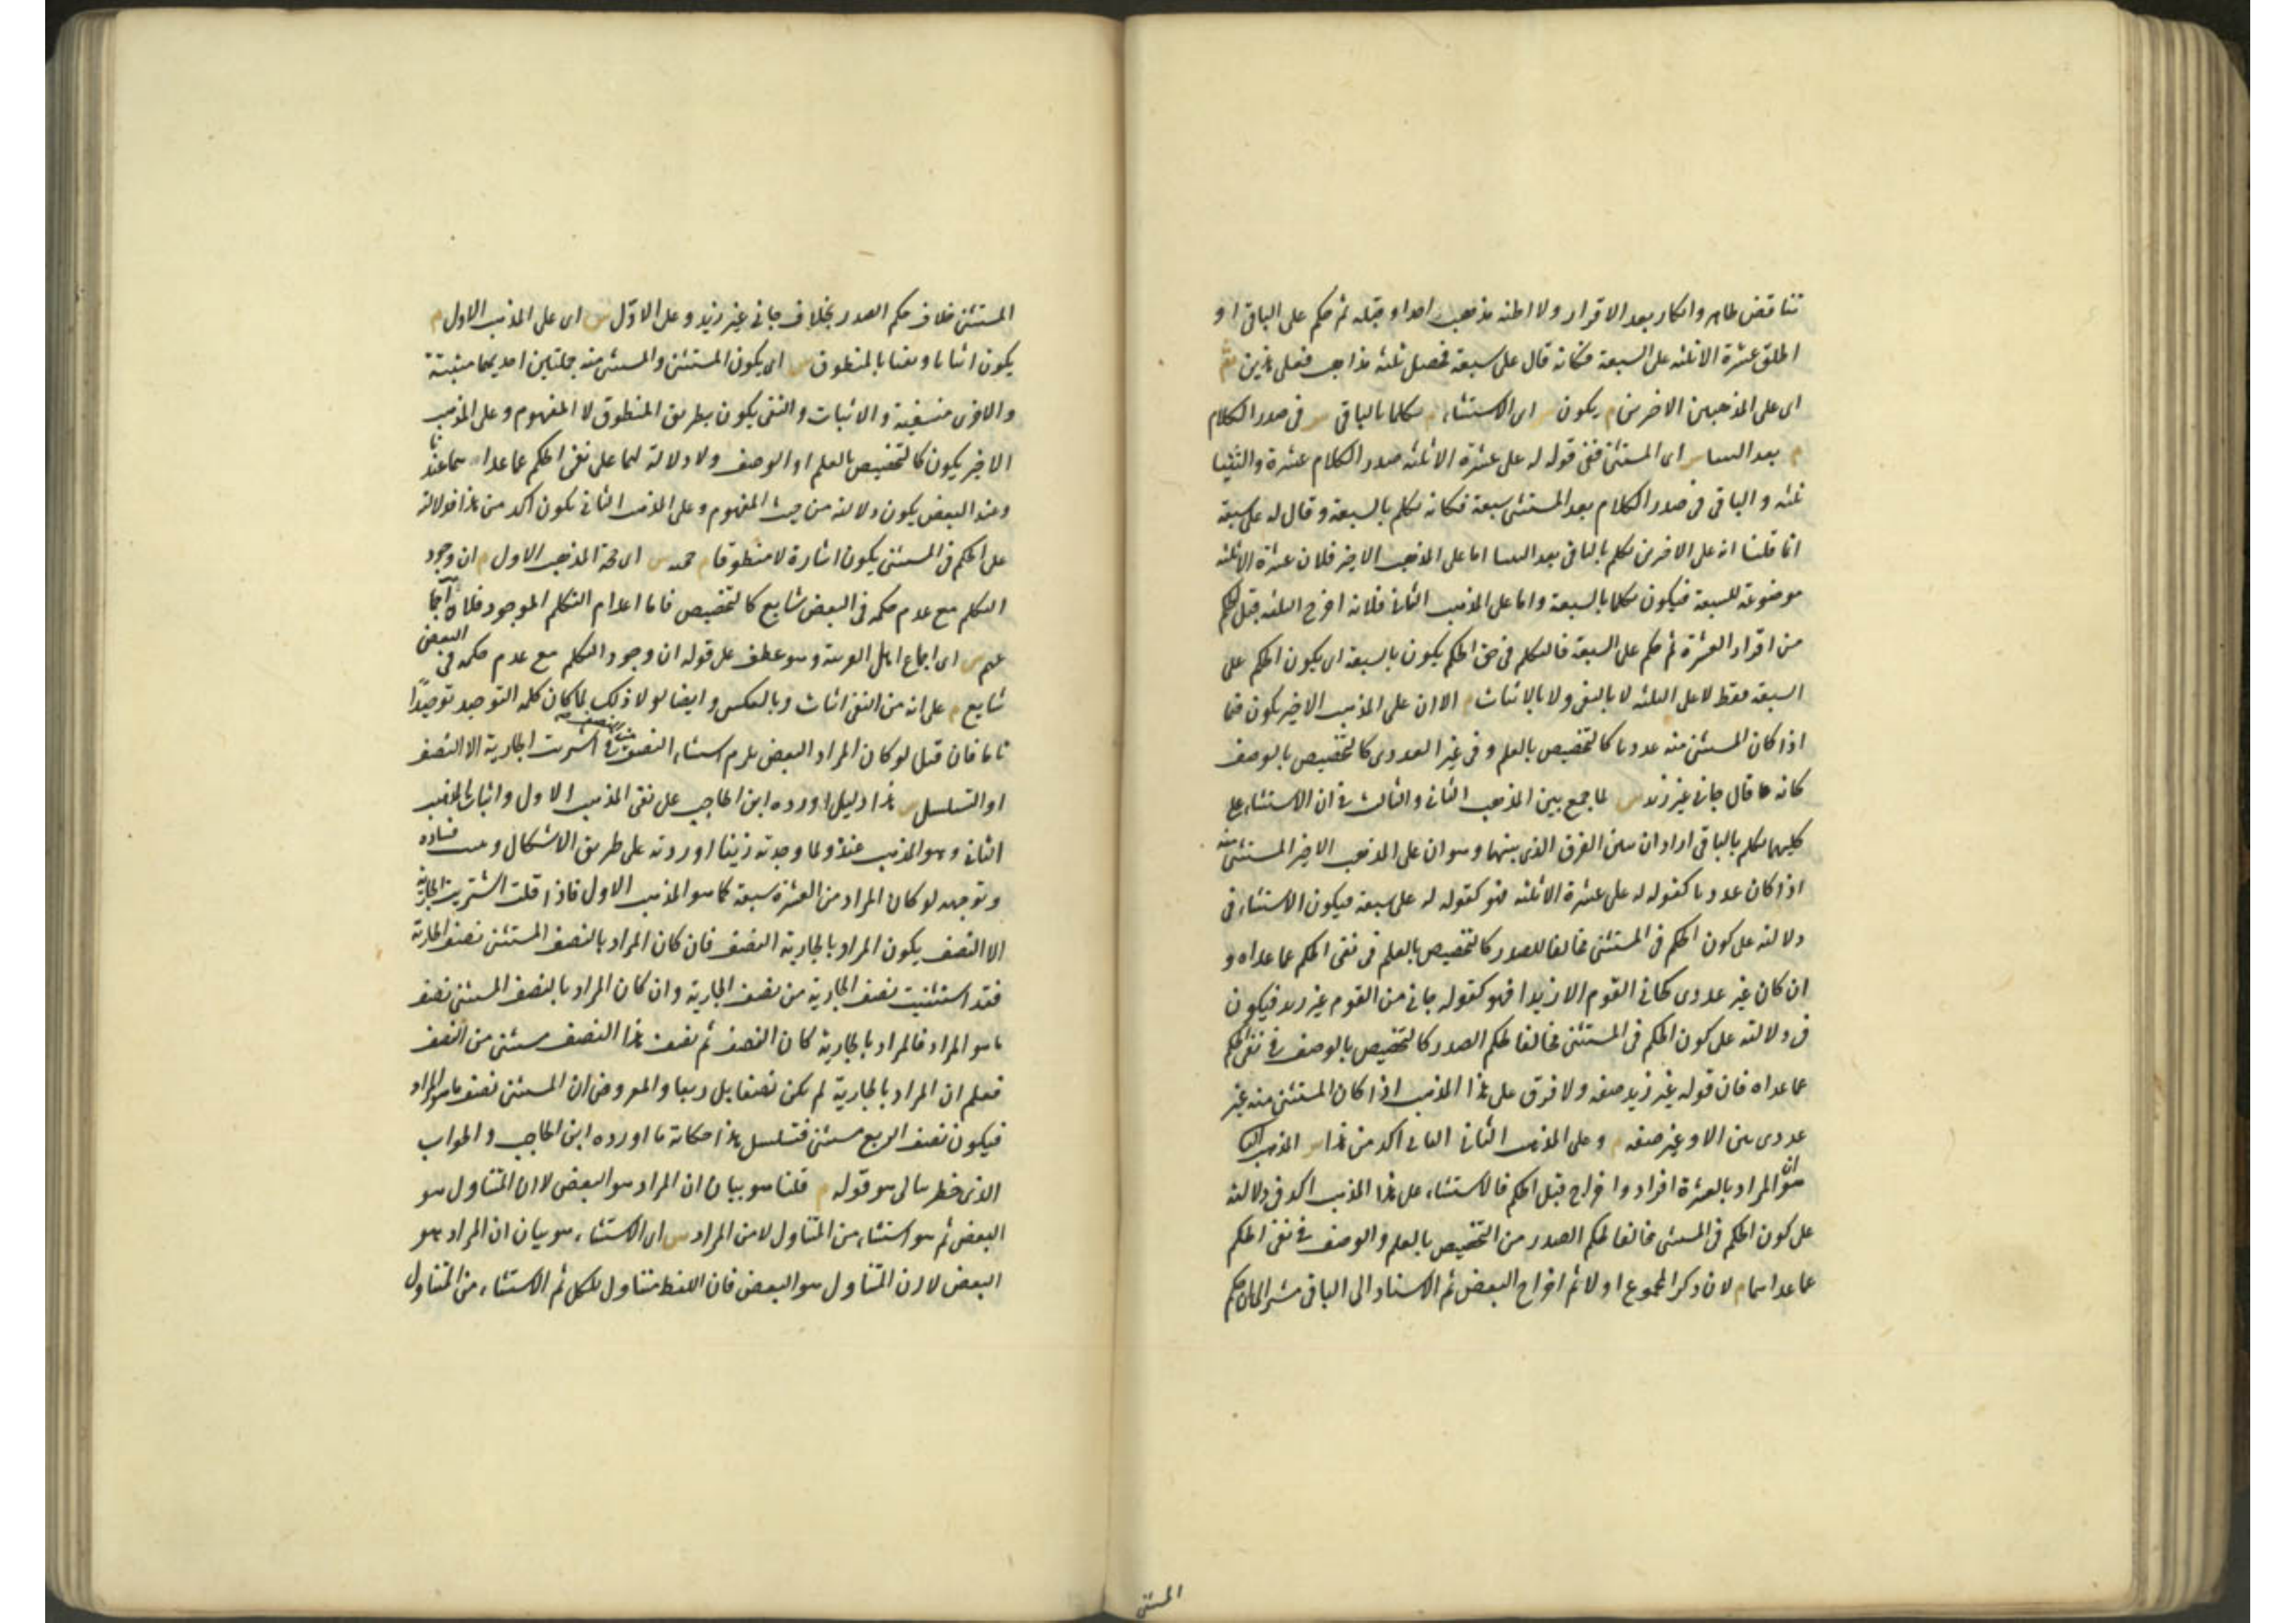 تناقض ظاهر وانكار بعد الاقرار ولا اظنه مذهب احد او قبله ثم حكم على الباقى او
اطلق عشرة الا ثلثة على السبعة فكانه قال على سبعة فحصل ثلثة مذاهب فعلى هذين
اى على المذهبين الاخرين م يكون س اى الاستثناء م تكلما بالباقى س فى صدر الكلام
م بعد الثنيا س اى المستثنى ففى قوله له على عشرة الا ثلثة صدر الكلام عشرة والثنيا
ثلثة والباقى فى صدر الكلام بعد المستثنى سبعة فكانه تكلم بالسبعة وقال له على سبعة
انما قلنا انه على الاخرين تكلم بالباقى بعد الثنيا اما على المذهب الاخير فلان عشرة الا ثلثة
موضوعة للسبعة فيكون تكلما بالسبعة واما على المذهب الثانى فلانه اخرج الثلثة قبل الحكم
من افراد العشرة ثم حكم على السبعة فالتكلم فى حق الحكم يكون بالسبعة اى يكون الحكم على
السبعة فقط لا على الثلثة لا بالنفى ولا بالاثبات م الا ان على المذهب الاخير يكون فيما
اذا كان المستثنى منه عدديا كالتخصيص بالعلم وفى غير العددى كالتخصيص بالوصف
كانه قال جانى غير زيد س لما جمع بين المذهب الثانى والثالث فى ان الاستثناء على
كليهما تكلم بالباقى اراد ان يبين الفرق الذى بينهما وهو ان على المذهب الاخير المستثنى منه
اذا كان عدديا كقوله له على عشرة الا ثلثة فهو كقوله له على سبعة فيكون الاستثناء فى
دلالته على كون الحكم فى المستثنى مخالفا للصدر كالتخصيص بالعلم فى نفى الحكم عما عداه و
ان كان غير عددى كجانى القوم الا زيدا فهو كقوله جانى من القوم غير زيد فيكون
فى دلالته على كون الحكم فى المستثنى مخالفا لحكم الصدر كالتخصيص بالوصف فى نفى الحكم
عما عداه فان قوله غير زيد صفة ولا فرق على هذا المذهب اذا كان المستثنى منه غير
عددى بين الا وغير صفة م وعلى المذهب الثانى اكد من هذا س المذهب الثانى
هو ان المراد بالعشرة افراد واخراج قبل الحكم فالاستثناء على هذا المذهب اكد فى دلالته
على كون الحكم فى المستثنى مخالفا لحكم الصدر من التخصيص بالعلم والوصف فى نفى الحكم
عما عداهما م لان ذكر المجموع اولا ثم اخراج البعض ثم الاسناد الى الباقى يشير الى ان حكم
المستثنى
المستثنى خلاف حكم الصدر بخلاف جانى غير زيد وعلى الاول س اى على المذهب الاول م
يكون اثباتا ونفيا بالمنطوق س اى يكون المستثنى والمستثنى منه جملتين احديهما مثبتة
والاخرى منفية والاثبات والنفى يكون بطريق المنطوق لا المفهوم وعلى المذهب
الاخير يكون كالتخصيص بالعلم او الوصف ولا دلالة لهما على نفى الحكم عما عداهما عندنا
وعند البعض يكون دلالته من حيث المفهوم وعلى المذهب الثانى يكون اكد من هذا فدلالته
على الحكم فى المستثنى يكون اشارة لا منطوقا م حجته س اى حجة المذهب الاول م ان وجود
التكلم مع عدم حكمه فى البعض شايع كالتخصيص فاما اعدام التكلم الموجود فلا م واجما
عهم س اى اجماع اهل العربية وهو عطف على قوله ان وجود التكلم مع عدم حكمه فى البعض
شايع م على انه من النفى اثبات وبالعكس وايضا لولا ذلك لما كان كلمة التوحيد توحيدا
تاما فان قيل لو كان المراد البعض يلزم استثناء النصف من نصفه فى اشتريت الجارية الا النصف
او التسلسل س هذا دليل اورده ابن الحاجب على نفى المذهب الاول واثبات المذهب
الثانى وهو المذهب عنده ولما وجدته زيفا اوردته على طريق الاشكال وبينت فساده
وتوجيهه لو كان المراد من العشرة سبعة كما هو المذهب الاول فاذا قلت اشتريت الجارية
الا النصف يكون المراد بالجارية النصف فان كان المراد بالنصف المستثنى نصف الجارية
فقد استثنيت نصف الجارية من نصف الجارية وان كان المراد بالنصف المستثنى نصف
ما هو المراد فالمراد بالجارية كان النصف ثم نصف هذا النصف مستثنى من النصف
فعلم ان المراد بالجارية لم يكن نصفا بل ربعا والمفروض ان المستثنى نصف ما هو المراد
فيكون نصف الربع مستثنى فتسلسل هذا حكاية ما اورده ابن الحاجب والجواب
الذى خطر ببالى هو قوله م قلنا هو بيان ان المراد هو البعض لا ان المتناول هو
البعض ثم هو استثناء من المتناول لا من المراد س اى الاستثناء هو بيان ان المراد هو
البعض لا ان المتناول هو البعض فان اللفظ متناول للكل ثم الاستثناء من المتناول